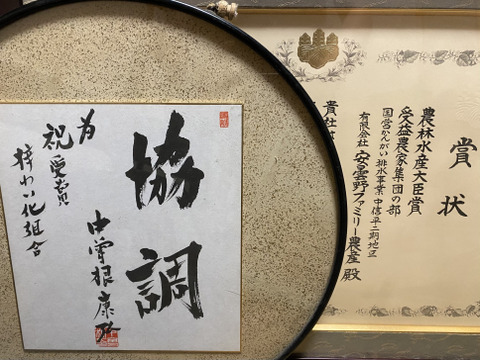 賞状
農林水産大臣賞
受益農家集団の部
国営かんがい排水事業 中信平二期地区
有限会社 安曇野ファミリー農産 殿
貴社
協調
中曽根康弘
為
祝受賞
梓わい化組合